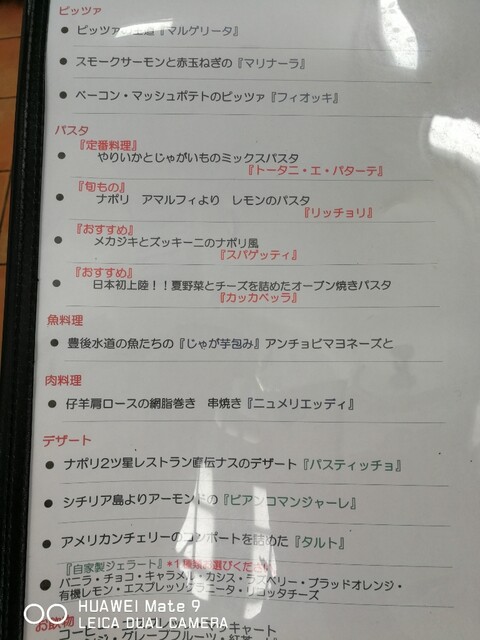 ピッツァ
● ピッツァの王道『マルゲリータ』
● スモークサーモンと赤玉ねぎの『マリナーラ』
● ベーコン・マッシュポテトのピッツァ『フィオッキ』
パスタ
『定番料理』
● やりいかとじゃがいものミックスパスタ
『トータニ・エ・パターテ』
『旬もの』
● ナポリ アマルフィより レモンのパスタ
『リッチョリ』
『おすすめ』
● メカジキとズッキーニのナポリ風
『スパゲッティ』
『おすすめ』
● 日本初上陸!!夏野菜とチーズを詰めたオーブン焼きパスタ
『カッカベッラ』
魚料理
● 豊後水道の魚たちの『じゃが芋包み』アンチョビマヨネーズと
肉料理
● 仔羊肩ロースの網脂巻き 串焼き『ニュメリエッディ』
デザート
● ナポリ2ツ星レストラン直伝ナスのデザート『パスティッチョ』
● シチリア島よりアーモンドの『ビアンコマンジャーレ』
● アメリカンチェリーのコンポートを詰めた『タルト』
『自家製ジェラート』*1種類お選びください
● バニラ・チョコ・キャラメル・カシス・ラズベリー・ブラッドオレンジ・
有機レモン・エスプレッソグラニータ・リコッタチーズ
お飲物
コーヒー
グレープフルーツ・紅茶
HUAWEI Mate 9
LEICA DUAL CAMERA